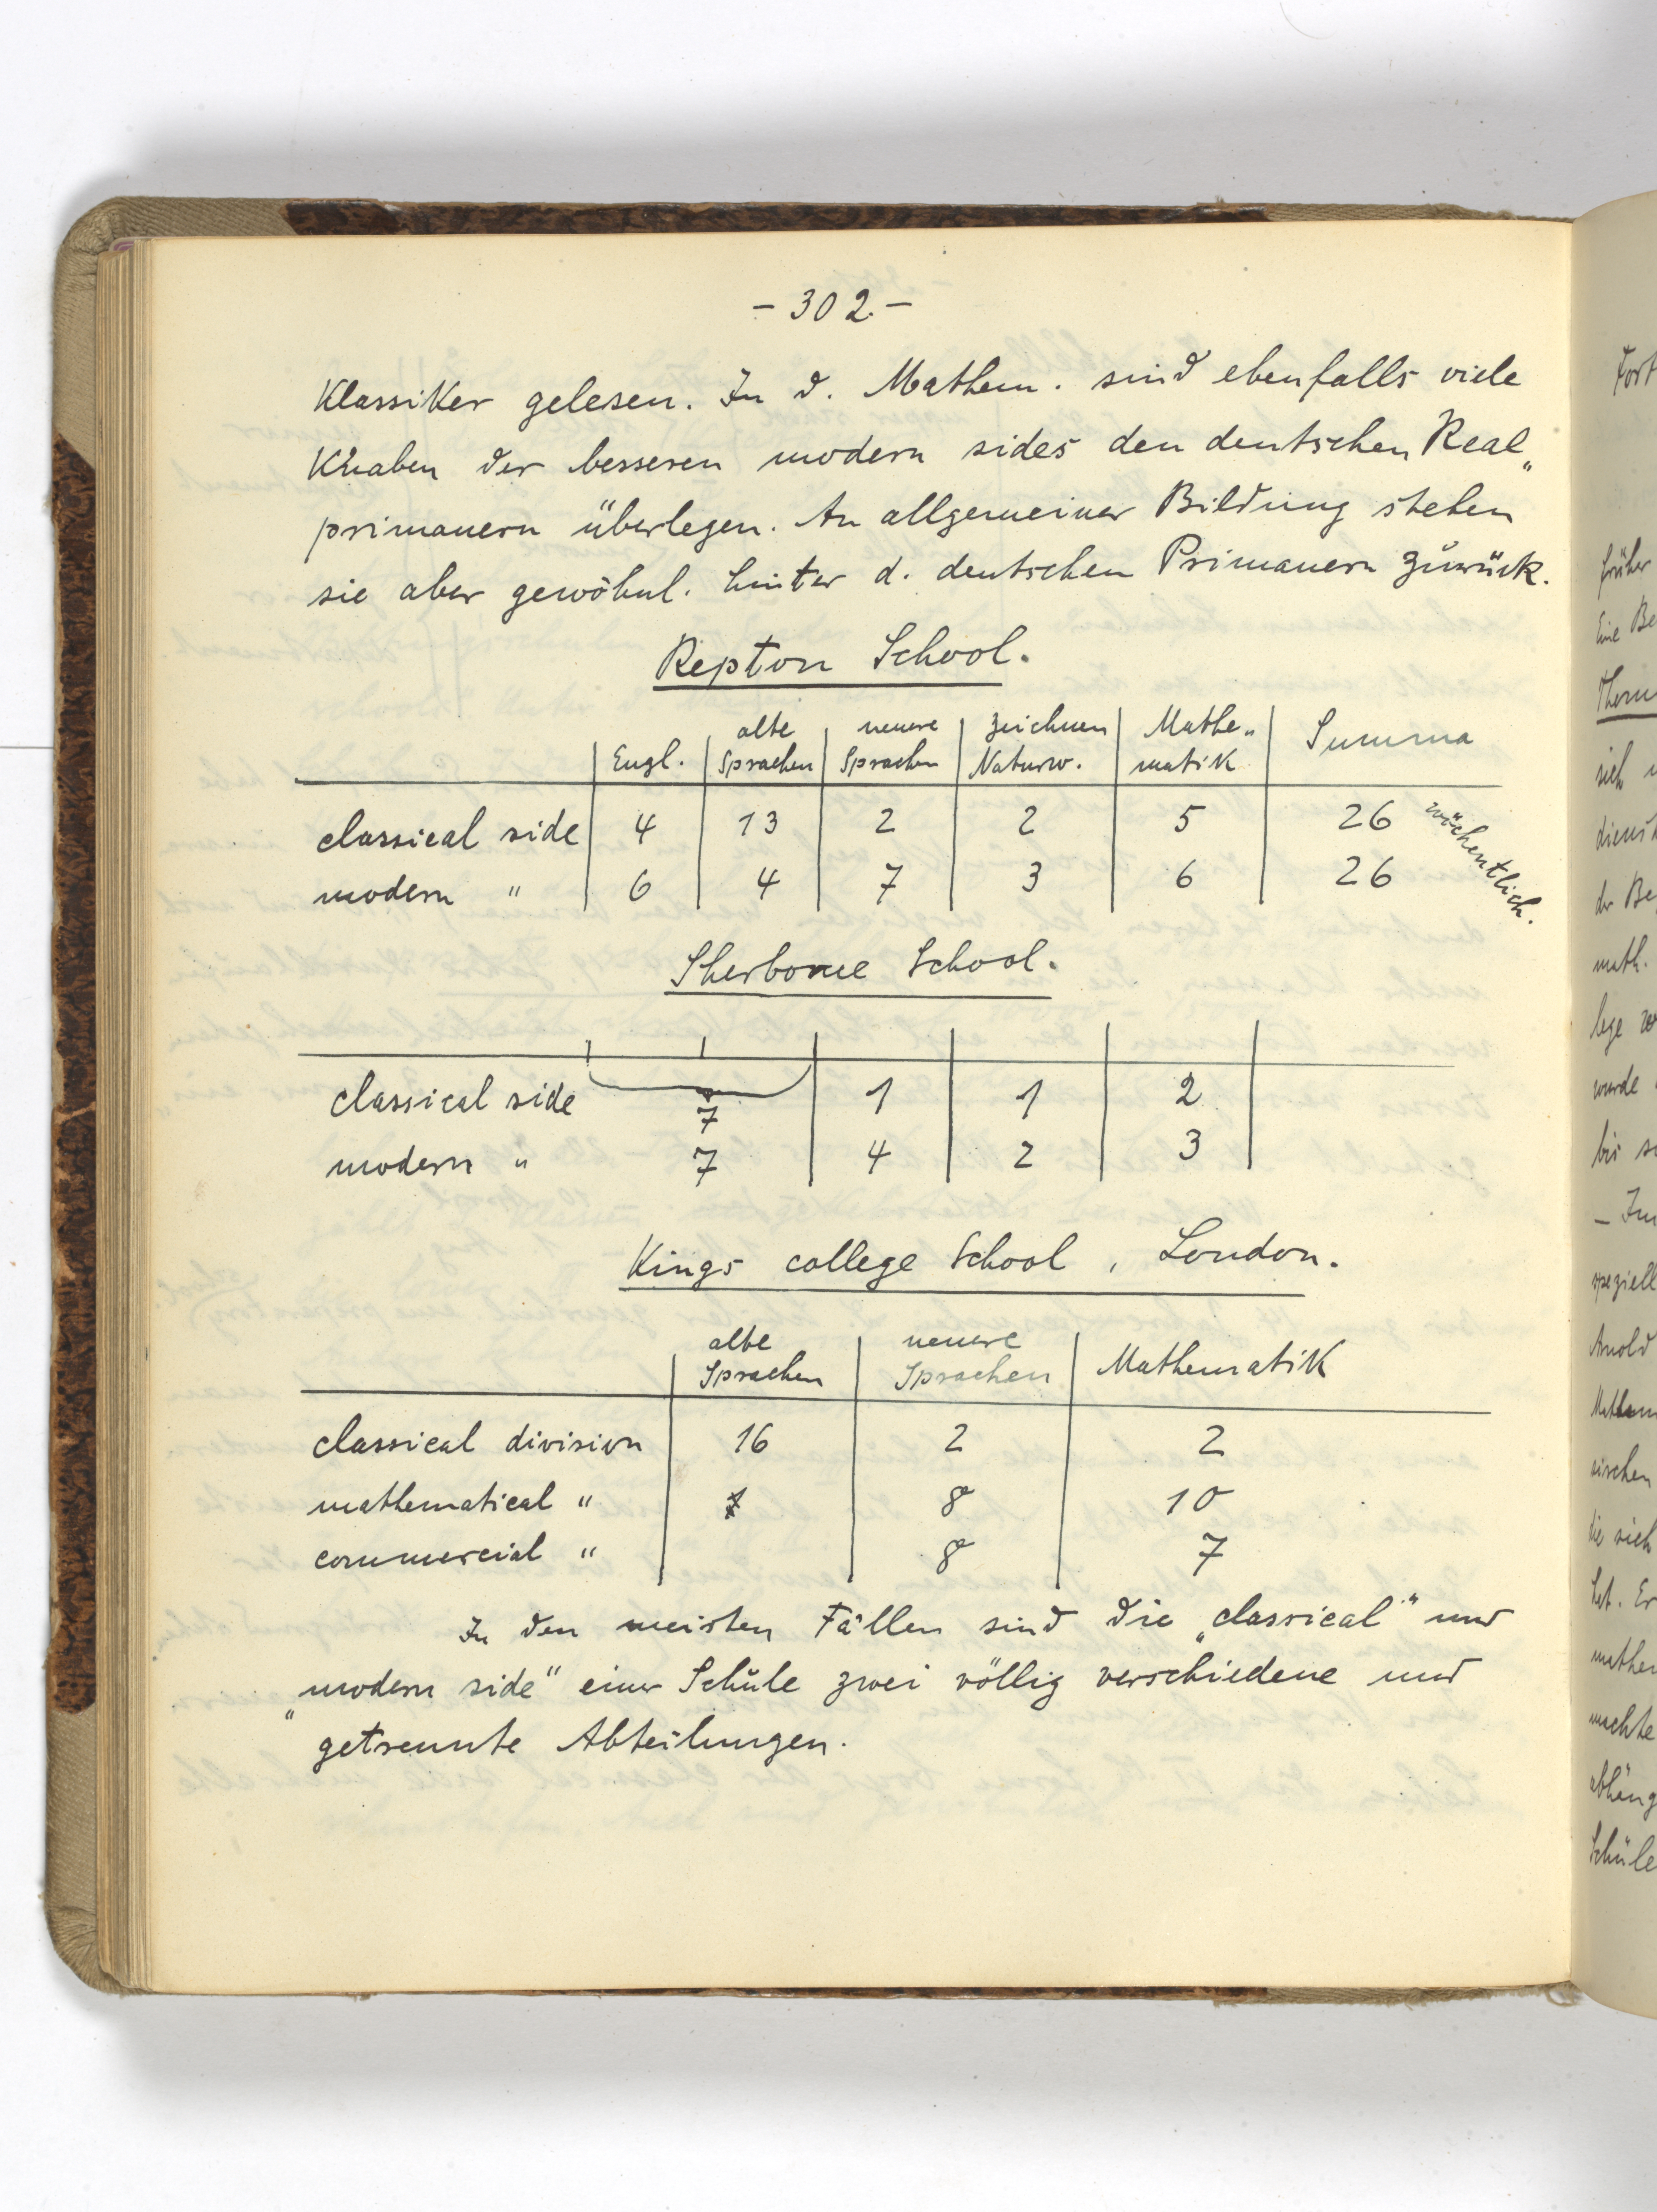 - 302. -
Klassiker gelesen. In d. Mathem. sind ebenfalls viele
Knaben der besseren modern sides den deutschen Real„
primanern überlegen. An allgemeiner Bildung stehen
sie aber gewöhnl. hinter d. deutschen Primanern zurück.
Repton School.
Engl. | alte Sprachen | neuere Sprachen | Zeichnen Naturw. | Mathe„ matik | Summa
classical side | 4 | 13 | 2 | 2 | 5 | 26 wöchentlich.
modern " | 6 | 4 | 7 | 3 | 6 | 26
Sherborne School.
classical side 7 | 1 | 1 | 2
modern " 7 | 4 | 2 | 3
Kings college School, London.
alte Sprachen | neuere Sprachen | Mathematik
classical division | 16 | 2 | 2
mathematical " | | 8 | 10
commercial " | | 8 | 7
In den meisten Fällen sind die „classical" und
„modern side" einer Schule zwei völlig verschiedene und
getrennte Abteilungen.
Fort
früher
Eine Be
sich
dienst
der Be
math.
lege
wurde
bis
- In
speziell
Arnold
die sich
hat. Er
machte
abhäng
Schule